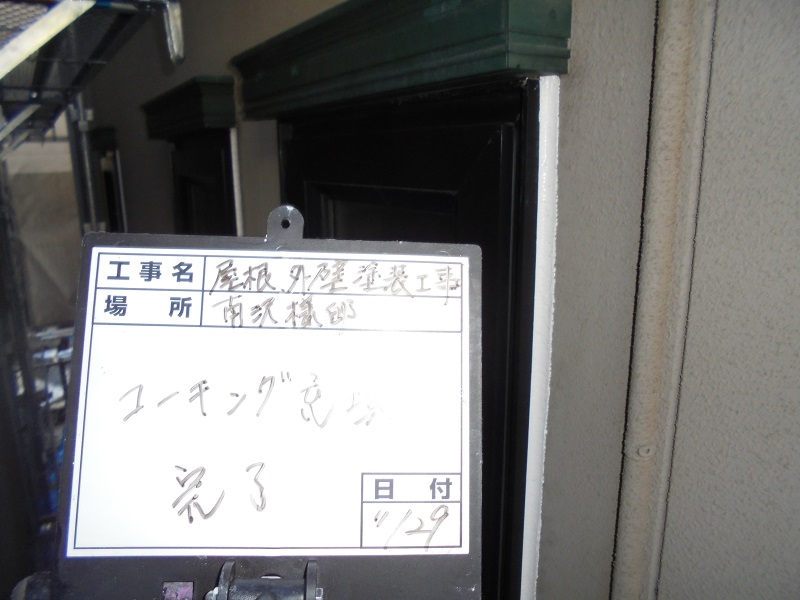 工事名 屋根、外壁塗装工事
場所 南沢様邸
コーキング充填
完了
日付
11/29